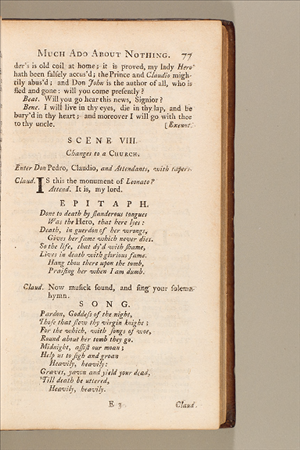 MUCH ADO ABOUT NOTHING. 77
der's is old coil at home; it is proved, my lady Hero
hath been falsely accus'd; the Prince and Claudio migh-
tily abus'd; and Don John is the author of all, who is
fled and gone: will you come presently?
Beat. Will you go hear this news, Signior?
Bene. I will live in thy eyes, die in thy lap, and be
bury'd in thy heart; and moreover I will go with thee
to thy uncle. [Exeunt.
SCENE VIII.
Changes to a CHURCH.
Enter Don Pedro, Claudio, and Attendants, with tapers.
Claud. IS this the monument of Leonato?
Attend. It is, my lord.
EPITAPH.
Done to death by slanderous tongues
Was the Hero, that here lies:
Death, in guerdon of her wrongs,
Gives her fame which never dies.
So the life, that dy'd with shame,
Lives in death with glorious fame.
Hang thou there upon the tomb,
Praising her when I am dumb.
Claud. Now musick sound, and sing your solemn
hymn.
SONG.
Pardon, Goddess of the night,
Those that slew thy virgin knight;
For the which, with songs of woe,
Round about her tomb they go.
Midnight, assist our moan;
Help us to sigh and groan
Heavily, heavily:
Graves, yawn and yield your dead,
'Till death be uttered,
Heavily, heavily.
E 3 Claud.